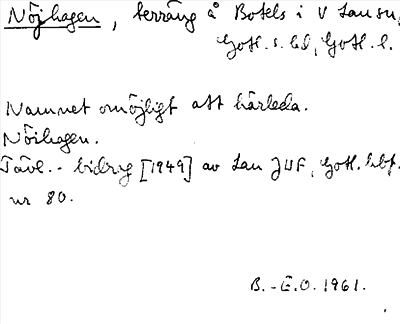 Nöjhagen, terräng å Botels i V Lau sn,
Gotl. s. hd, Gotl. l.
Namnet omöjligt att härleda.
Nöihagen.
Tävl.- bidrag [1949] av Lau JUF, Gotl.
nr 80.
B.-E.O. 1961.